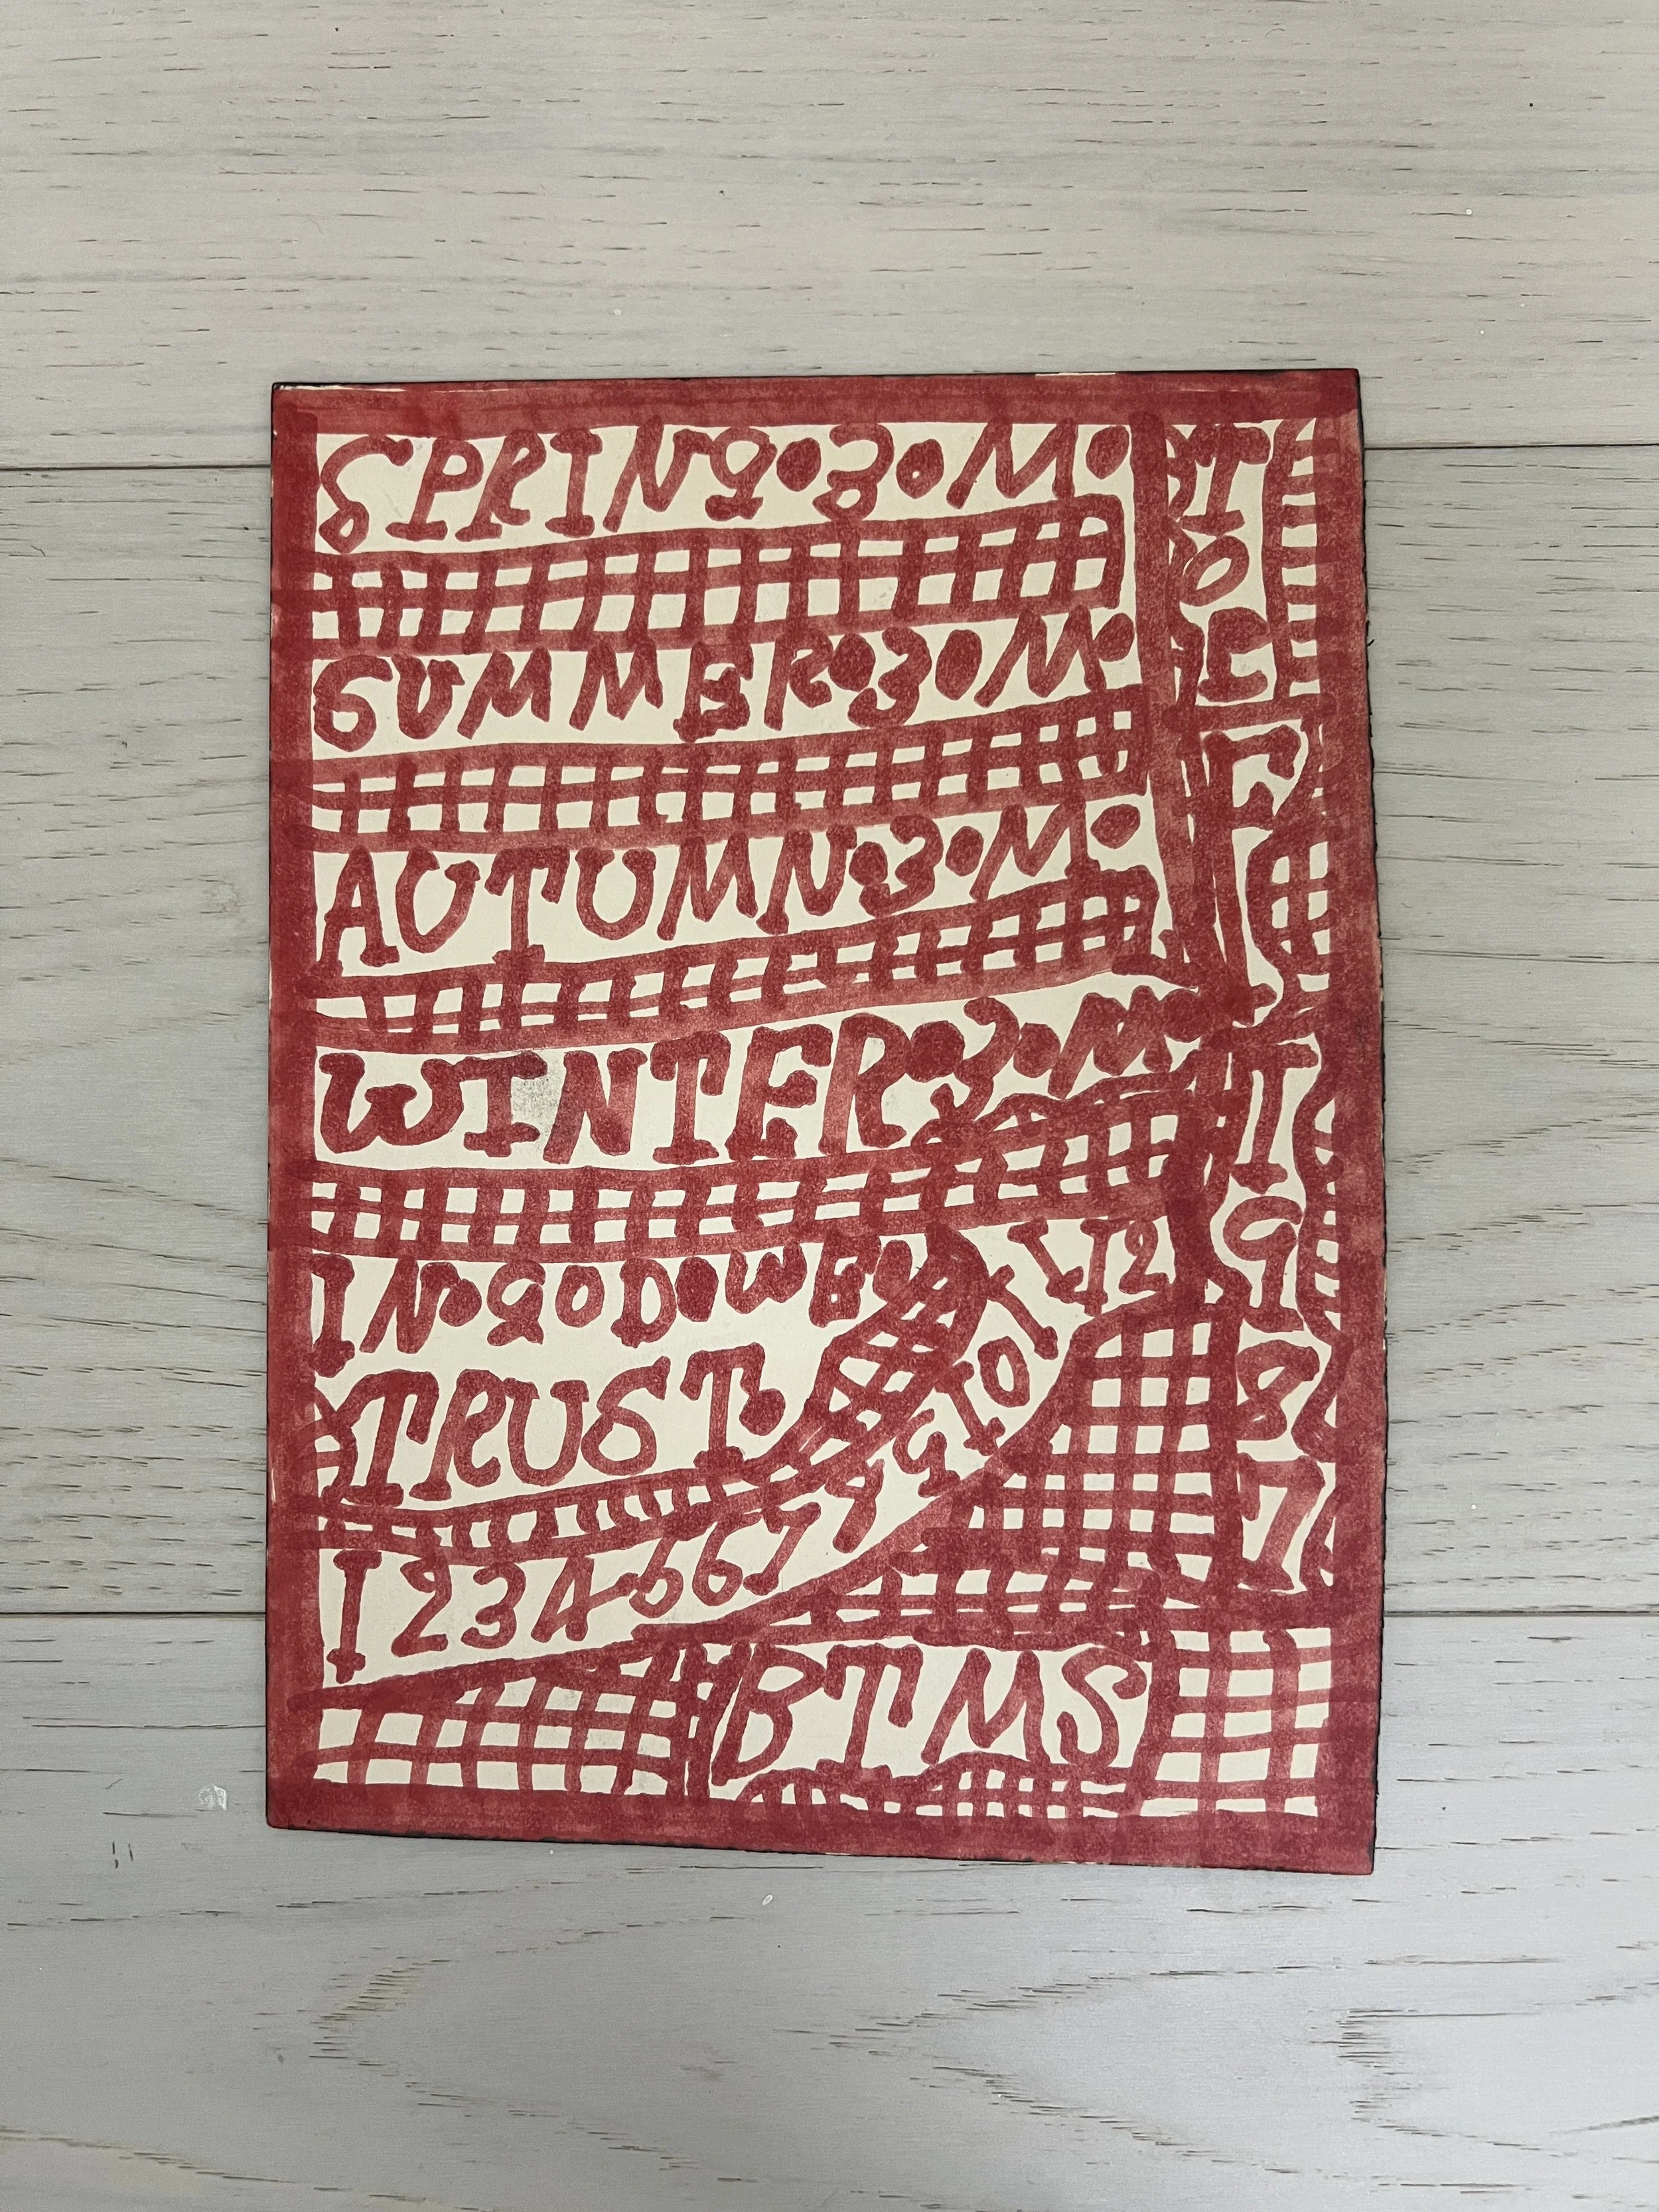 SPRING•3•M•
SUMMER•3•M•
AUTUMN•3•M•
WINTER•3•M•
IN•GOD•WE•
TRUST•
1 2 3 4 5 6 7 8 9 10 11 12
BTMS
1987